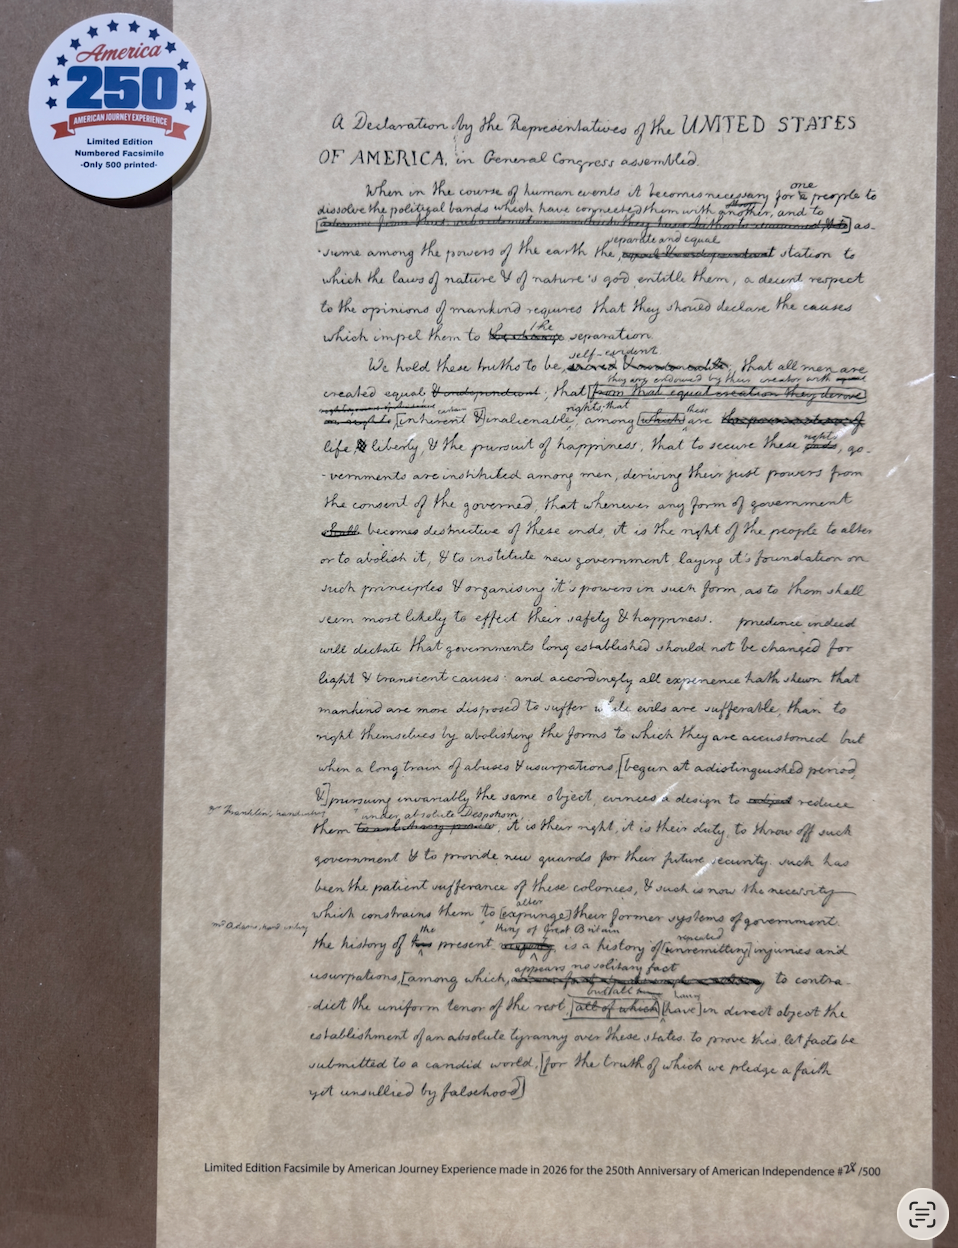 America
250
AMERICAN JOURNEY EXPERIENCE
Limited Edition
Numbered Facsimile
-Only 500 printed-
A Declaration by the Representatives of the UNITED STATES
OF AMERICA, in General Congress assembled.
When in the course of human events it becomes necessary for a one people to
dissolve the political bands which have connected them with another, and to
as-
separate and equal
-sume among the powers of the earth the station to
which the laws of nature & of nature's god entitle them, a decent respect
to the opinions of mankind requires that they should declare the causes
the
which impel them to the change separation.
self-evident
We hold these truths to be, that all men are
they are endowed by their creator with
created equal & independent, that [from that equal creation they derive
rights; that
certain these
[inherent &] inalienable, among [which] are the preservation of
rights
life & liberty, & the pursuit of happiness, that to secure these ends, go-
-vernments are instituted among men, deriving their just powers from
the consent of the governed, that whenever any form of government
shall becomes destructive of these ends, it is the right of the people to alter
or to abolish it, & to institute new government, laying it's foundation on
such principles & organising it's powers in such form, as to them shall
seem most likely to effect their safety & happiness. prudence indeed
will dictate that governments long established should not be changed for
light & transient causes: and accordingly all experience hath shewn that
mankind are more disposed to suffer while evils are sufferable, than to
right themselves by abolishing the forms to which they are accustomed. but
when a long train of abuses & usurpations [begun at a distinguished period,
&] pursuing invariably the same object, evinces a design to reduce
Dr Franklin's handwriting
under absolute Despotism
them to arbitrary power, it is their right, it is their duty, to throw off such
government & to provide new guards for their future security. such has
been the patient sufferance of these colonies, & such is now the necessity
alter
which constrains them to [expunge] their former systems of government.
Mr Adams' hand writing
the king of Great Britain repeated
the history of his present is a history of [unremitting] injuries and
appears no solitary fact
usurpations, [among which, to contra-
but all having
-dict the uniform tenor of the rest, [all of which] [have] in direct object the
establishment of an absolute tyranny over these states. to prove this, let facts be
submitted to a candid world, [for the truth of which we pledge a faith
yet unsullied by falsehood]
Limited Edition Facsimile by American Journey Experience made in 2026 for the 250th Anniversary of American Independence #28/500